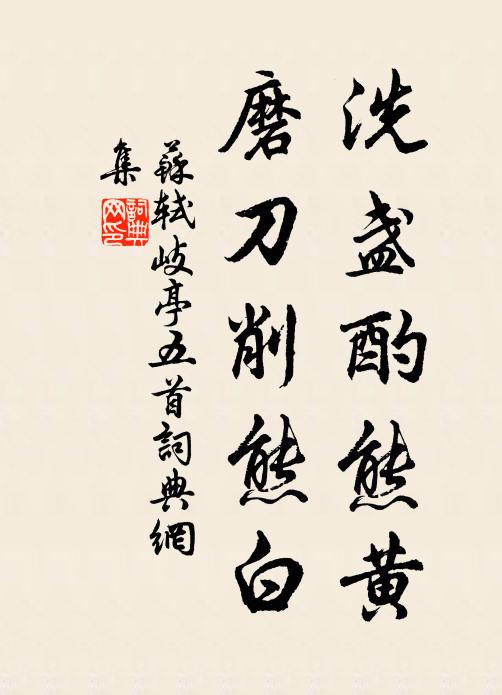 洗盞酌熊黄
磨刀削熊白
蘇軾岐亭五首詞典網
集
詞典
网印